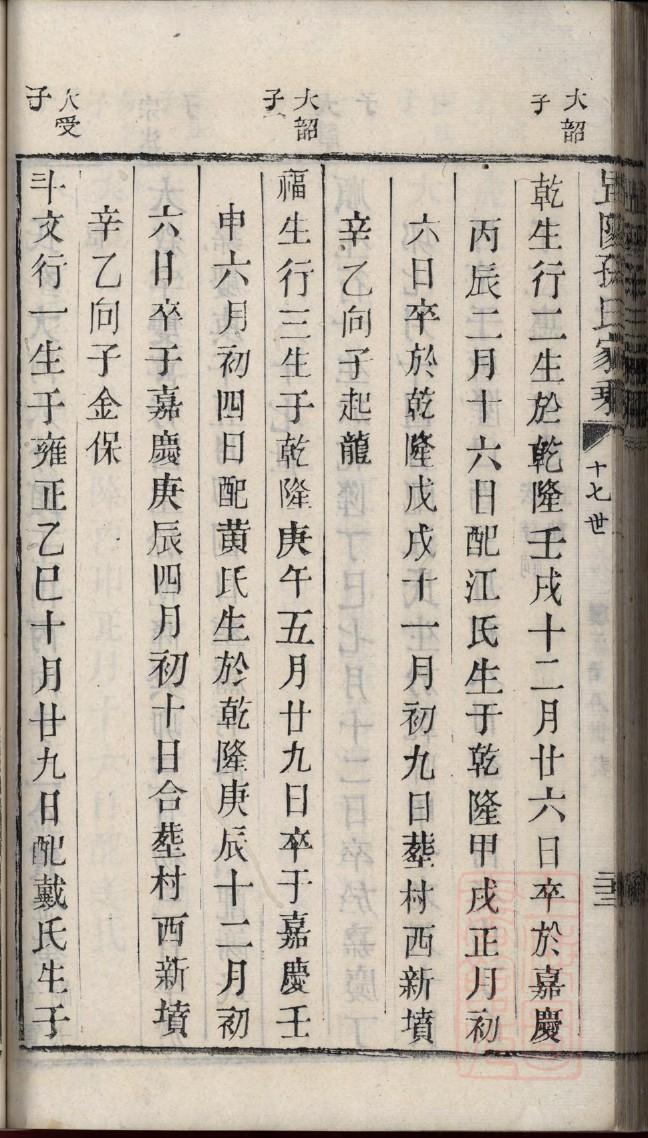 孫氏家乘
十七世
大韶
子
乾生行二生於乾隆壬戌十二月廿六日卒於嘉慶
丙辰二月十六日配江氏生于乾隆甲戌正月初
六日卒於乾隆戊戌十一月初九日塟村西新墳
辛乙向子起龍
大韶
子
福生行三生于乾隆庚午五月廿九日卒于嘉慶壬
申六月初四日配黃氏生於乾隆庚辰十二月初
六日卒于嘉慶庚辰四月初十日合塟村西新墳
辛乙向子金保
大受
子
斗文行一生于雍正乙巳十月廿九日配戴氏生于